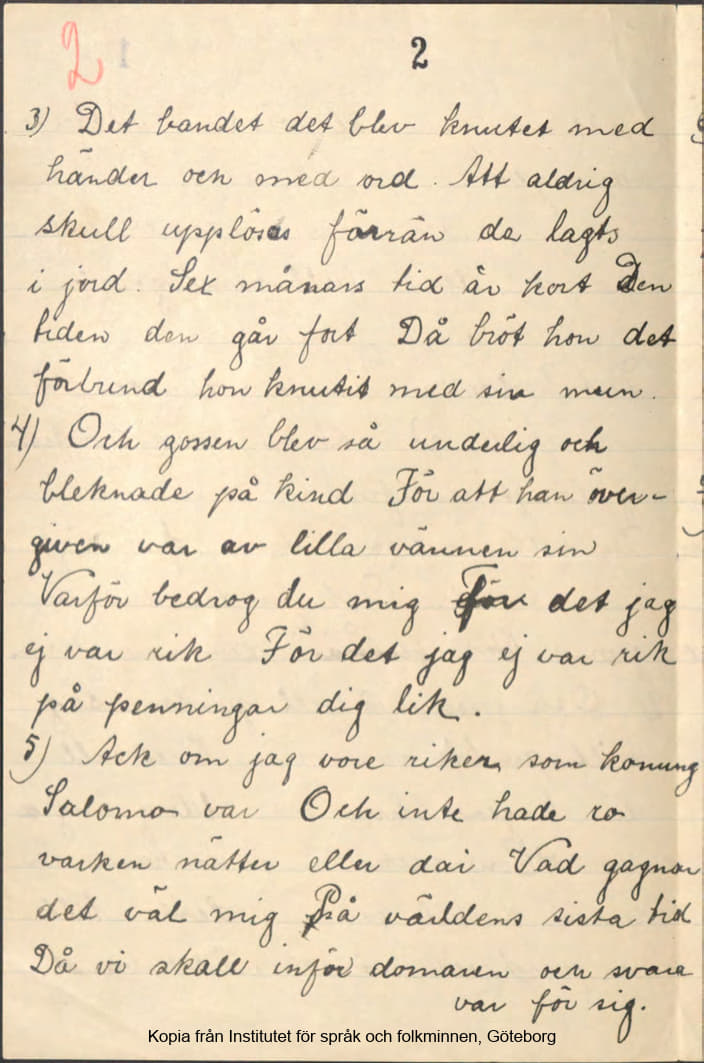 2 2
3) Det bandet det blev knutet med
händer och med ord. Att aldrig
skull upplöses förrän de lagts
i jord. Sex månars tid är kort Den
tiden den går fort Då bröt hon det
förbund hon knutit med sin mun.
4) Och gossen blev så underlig och
bleknade på kind För att han över-
given var av lilla vännen sin
Varför bedrog du mig För det jag
ej var rik För det jag ej var rik
på penningar dig lik.
5) Ack om jag vore riker som konung
Salomo var Och inte hade ro
varken nätter eller dar Vad gagnar
det väl mig På världens sista tid
Då vi skall inför domaren och svara
var för sig.
Kopia från Institutet för språk och folkminnen, Göteborg